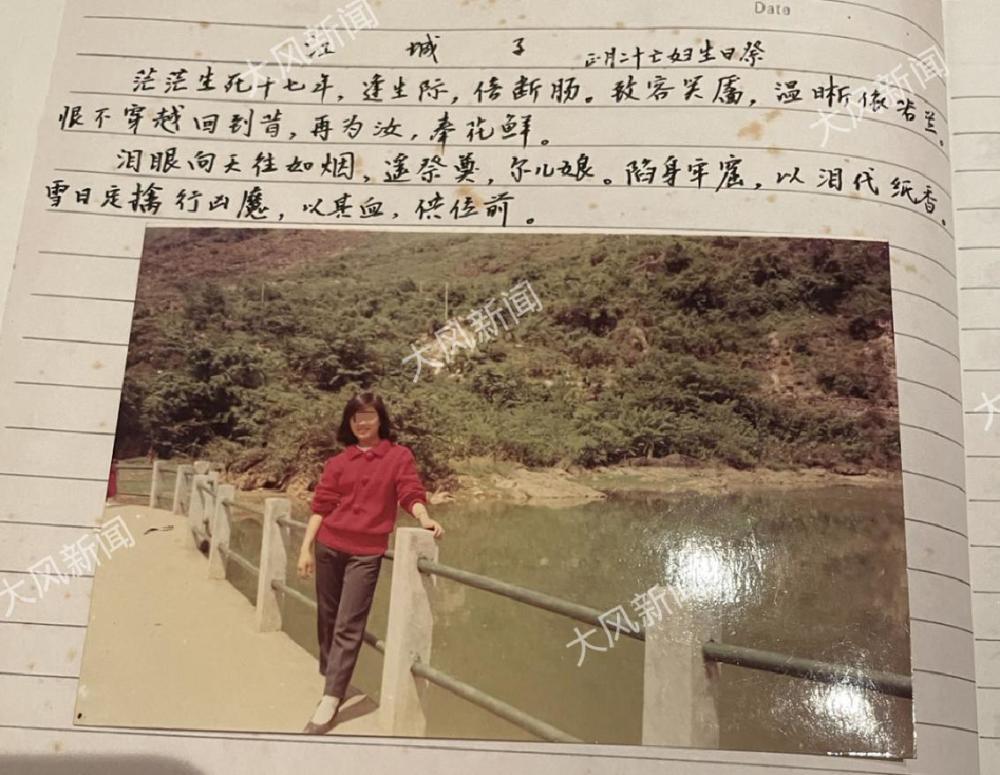 Date
江 城 子 正月二十亡妇生日祭
茫茫生死十七年，逢生际，倍断肠。致容笑靥，温晰依若兰。
恨不穿越回到昔，再为汝，奉花鲜。
泪眼向天往如烟，遥祭奠，尔儿娘。陷身牢窟，以泪代纸香。
雪日定擒行凶魔，以其血，供位前。
大风新闻
大风新闻
大风新闻
大风新闻
大风新闻
大风新闻